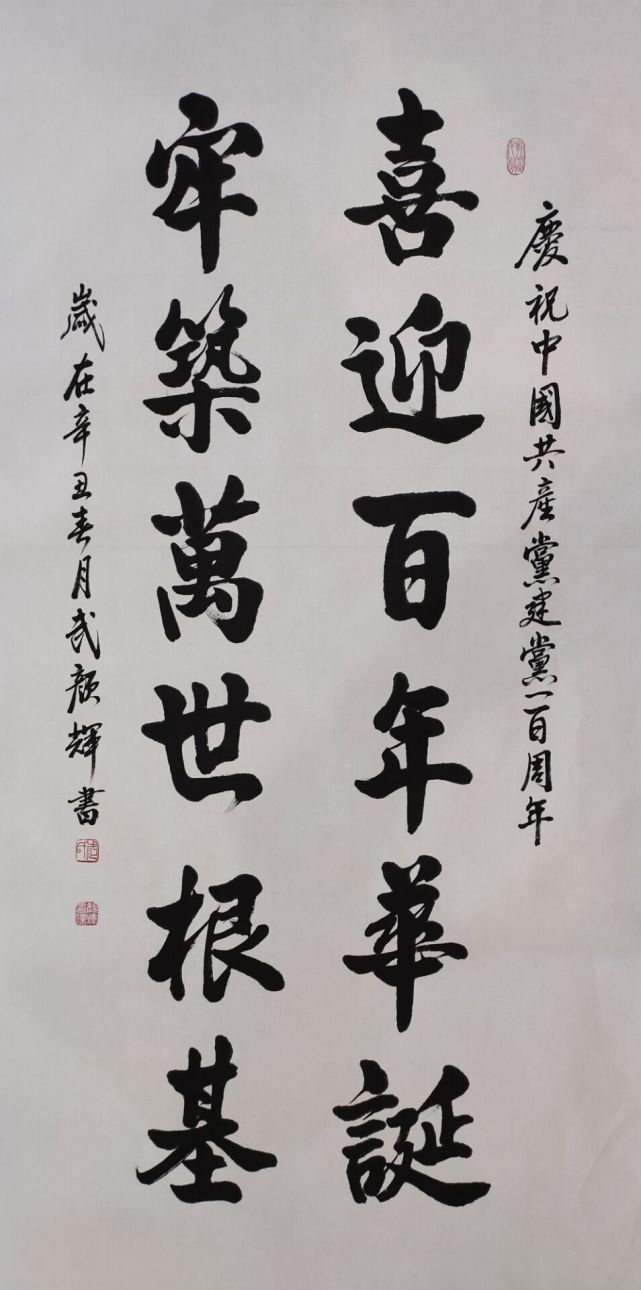 慶祝中國共產黨建黨一百周年
喜迎百年華誕
牢築萬世根基
歲在辛丑春月武顏輝書